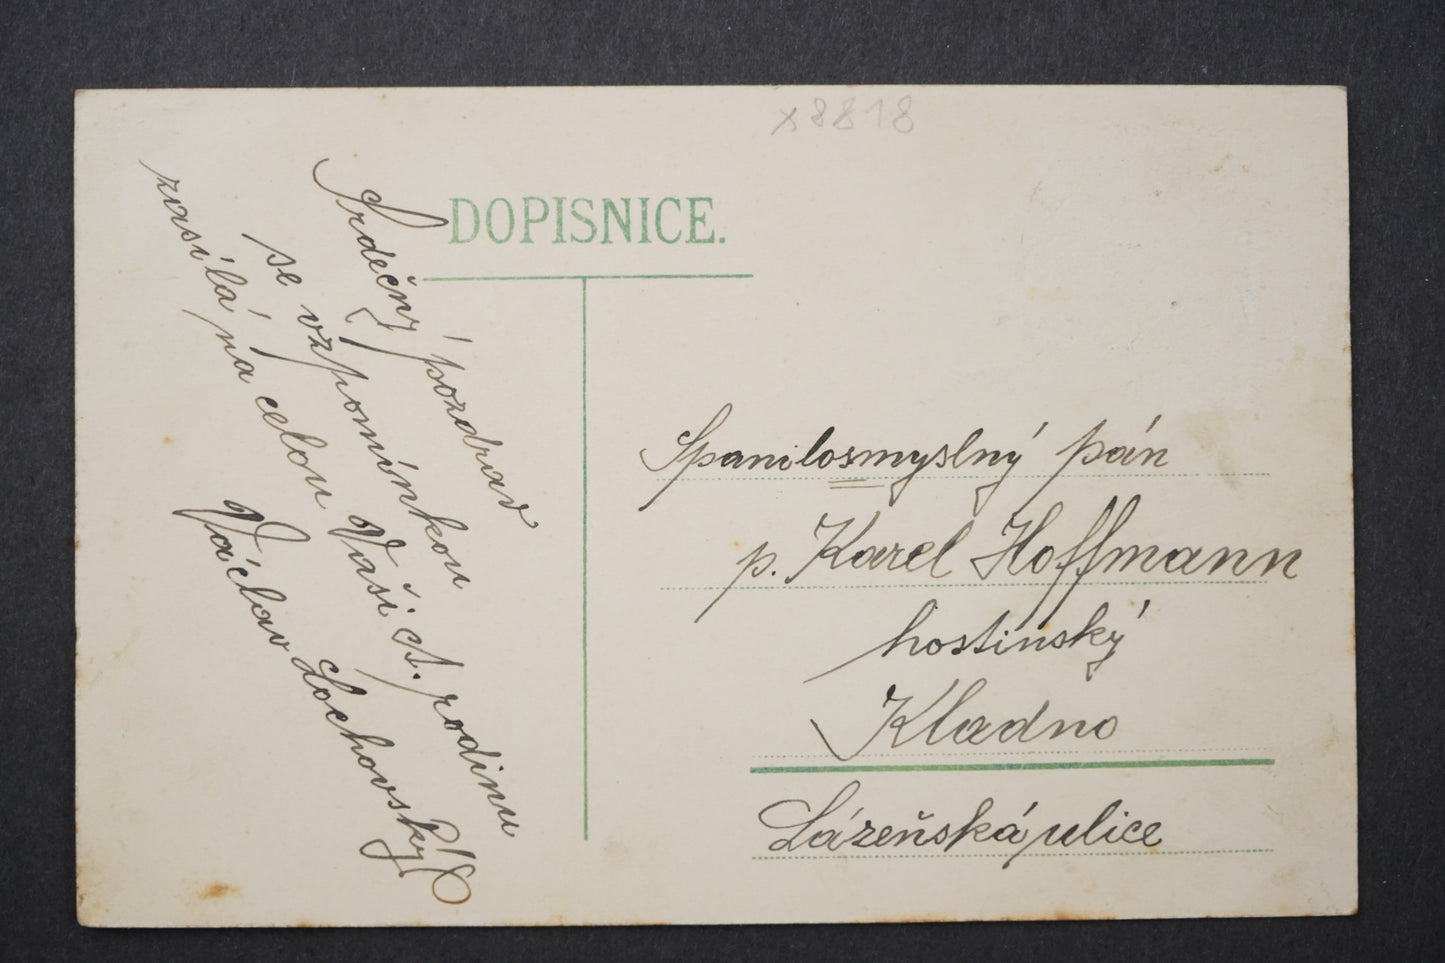 x8818
DOPISNICE.
Srdečný pozdrav
se vzpomínkou
zasílá na celou Vaši ct. rodinu
Václav Lochovský
Spanilosmyslný pán
p. Karel Hoffmann
hostinský
Kladno
Lázeňská ulice